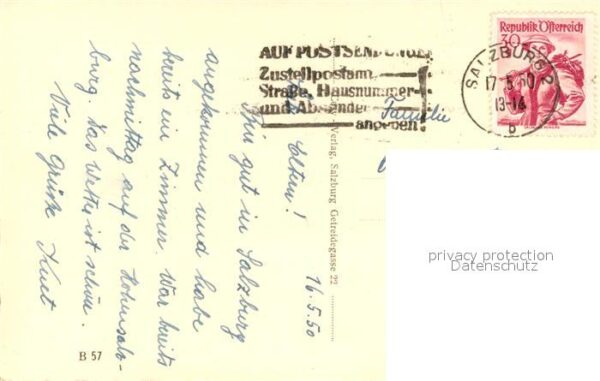 Republik Österreich
30
SALZBURG 2
17.5.50
13-14
b
AUF POSTSENDUNGEN
Zustellpostamt
Straße, Hausnummer
und Absender
angeben!
Familie
Verlag, Salzburg Getreidegasse 22
16.5.50
Eltern!
Bin gut in Salzburg
angekommen und habe
bereits ein Zimmer. War bereits
nachmittag auf der Hohensalz-
burg. Das Wetter ist schön.
Viele Grüße Knut
B 57
privacy protection
Datenschutz